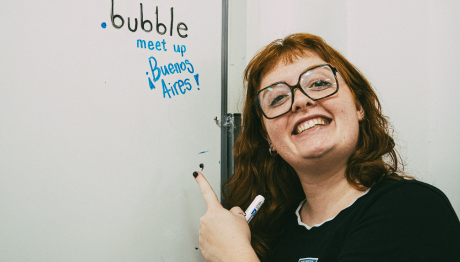 .bubble
meet up
¡Buenos
Aires!